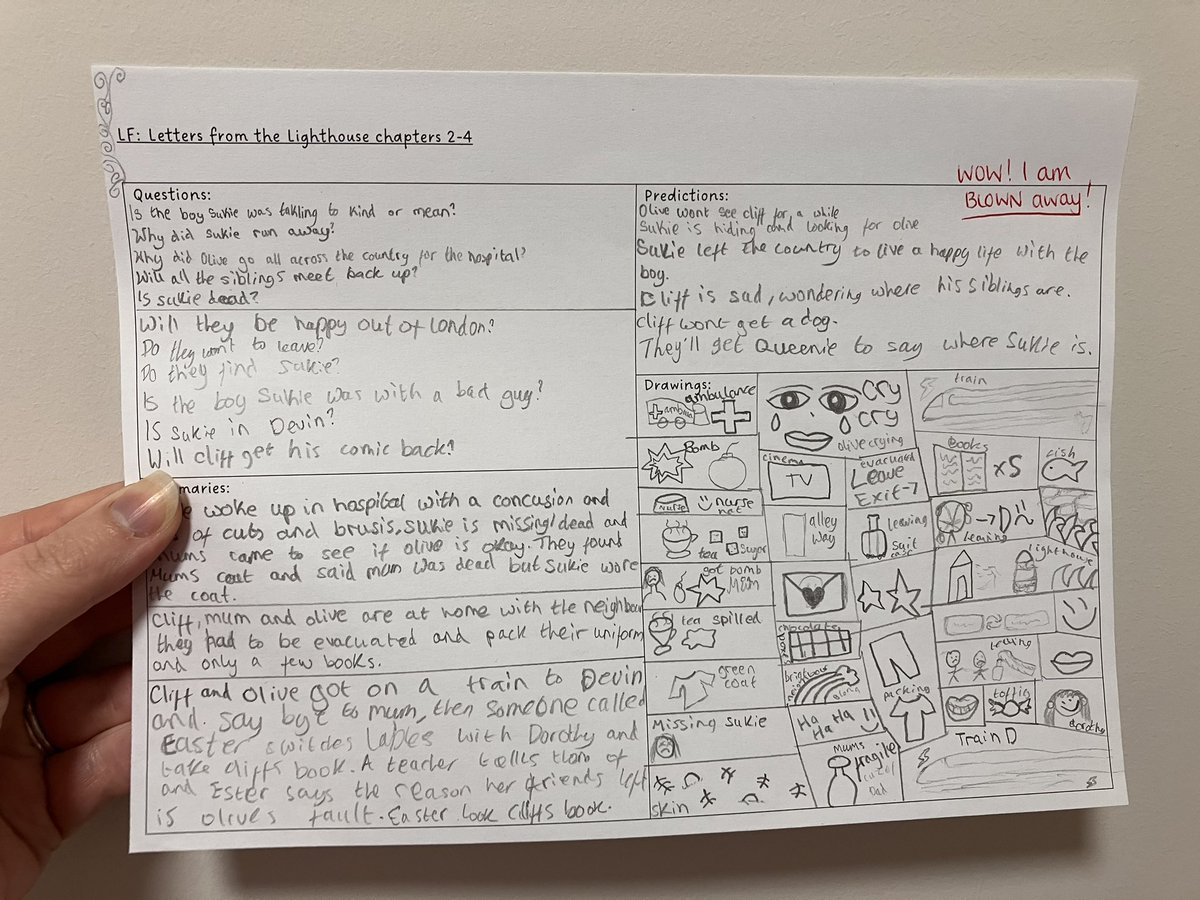 LF: Letters from the Lighthouse chapters 2-4
WOW! I am
BLOWN away!
Questions:
Is the boy Sukie was takling to kind or mean?
Why did Sukie run away?
Why did Olive go all across the country for the hospital?
Will all the siblings meet back up?
Is sukie dead?
Will they be happy out of London?
Do they want to leave?
Do they find Sukie?
Is the boy Sukie was with a bad guy?
Is Sukie in Devin?
Will cliff get his comic back?
maries:
woke up in hospital with a concusion and
of cuts and brusis, Sukie is missing/dead and
Mums came to see if olive is okay. They found
Mums coat and said mum was dead but Sukie wore
the coat.
Cliff, mum and olive are at home with the neighbour
they had to be evacuated and pack their uniform
and only a few books.
Cliff and Olive got on a train to Devin
and say bye to mum, then someone called
Easter switches lables with Dorothy and
take cliffs book. A teacher tells them of
and Ester says the reason her friends left
is olives fault. Easter took Cliffs book.
Predictions:
Olive wont see cliff for a while
Sukie is hiding and looking for olive
Sukie left the country to live a happy life with the
boy.
Cliff is sad, wondering where his siblings are.
cliff wont get a dog.
They'll get Queenie to say where Sukie is.
Drawings:
ambulance
cry
cry
olive crying
train
Bomb
cinema
TV
evacuated
Leave
Exit
books
x5
fish
nurse
nurse
hat
tea
Sugar
alley
way
leaving
Suit
case
→D
leaving
lighthouse
got bomb
Mum
tea spilled
chocolate
green
coat
packing
toffie
dorothy
Missing Sukie
Ha Ha
Ha
Mums
fragile
Dad
Train D
skin